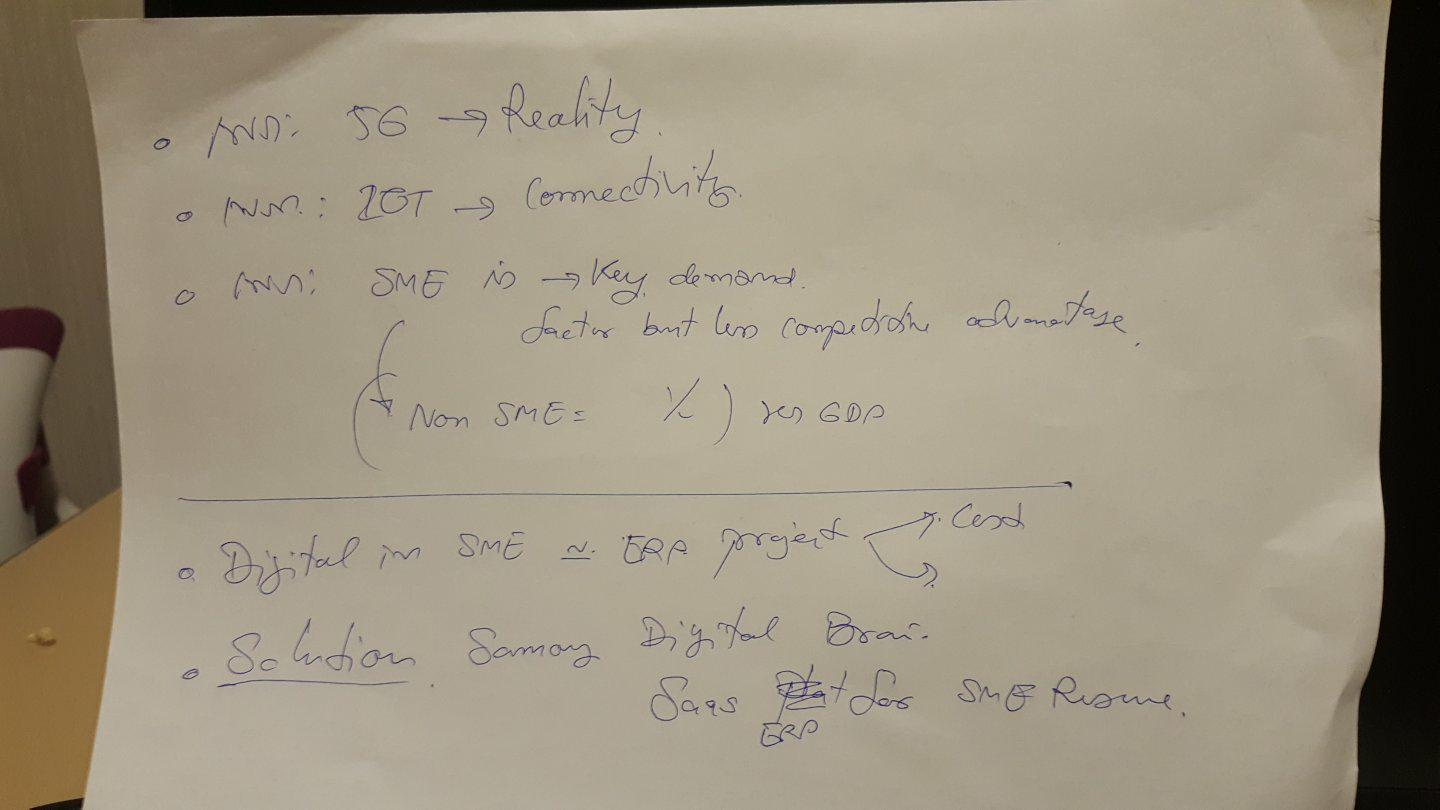 5G → Reality.
IOT → Connectivity.
SME is → Key demand.
factor but less competitive advantage.
Non SME = % ) GDP
• Digital in SME ≃ ERP project Cost
• Solution Digital Brai.
Saas for SME
ERP